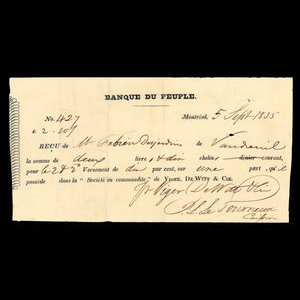 BANQUE DU PEUPLE.
No. 427 Montreal, 5 Sept 1835
£ 2.10/
REÇU de Mr Fabien Desjardins de Vaudreuil
la somme de deux livres & dix chelins courant,
pour le 2d & Versement de dix per cent, sur une part, qu'il
possède dans la "Société en commandite" de VIGER, DE WITT & CIE.
pr Viger DeWitt & Cie
Le Tourneux
Caissier